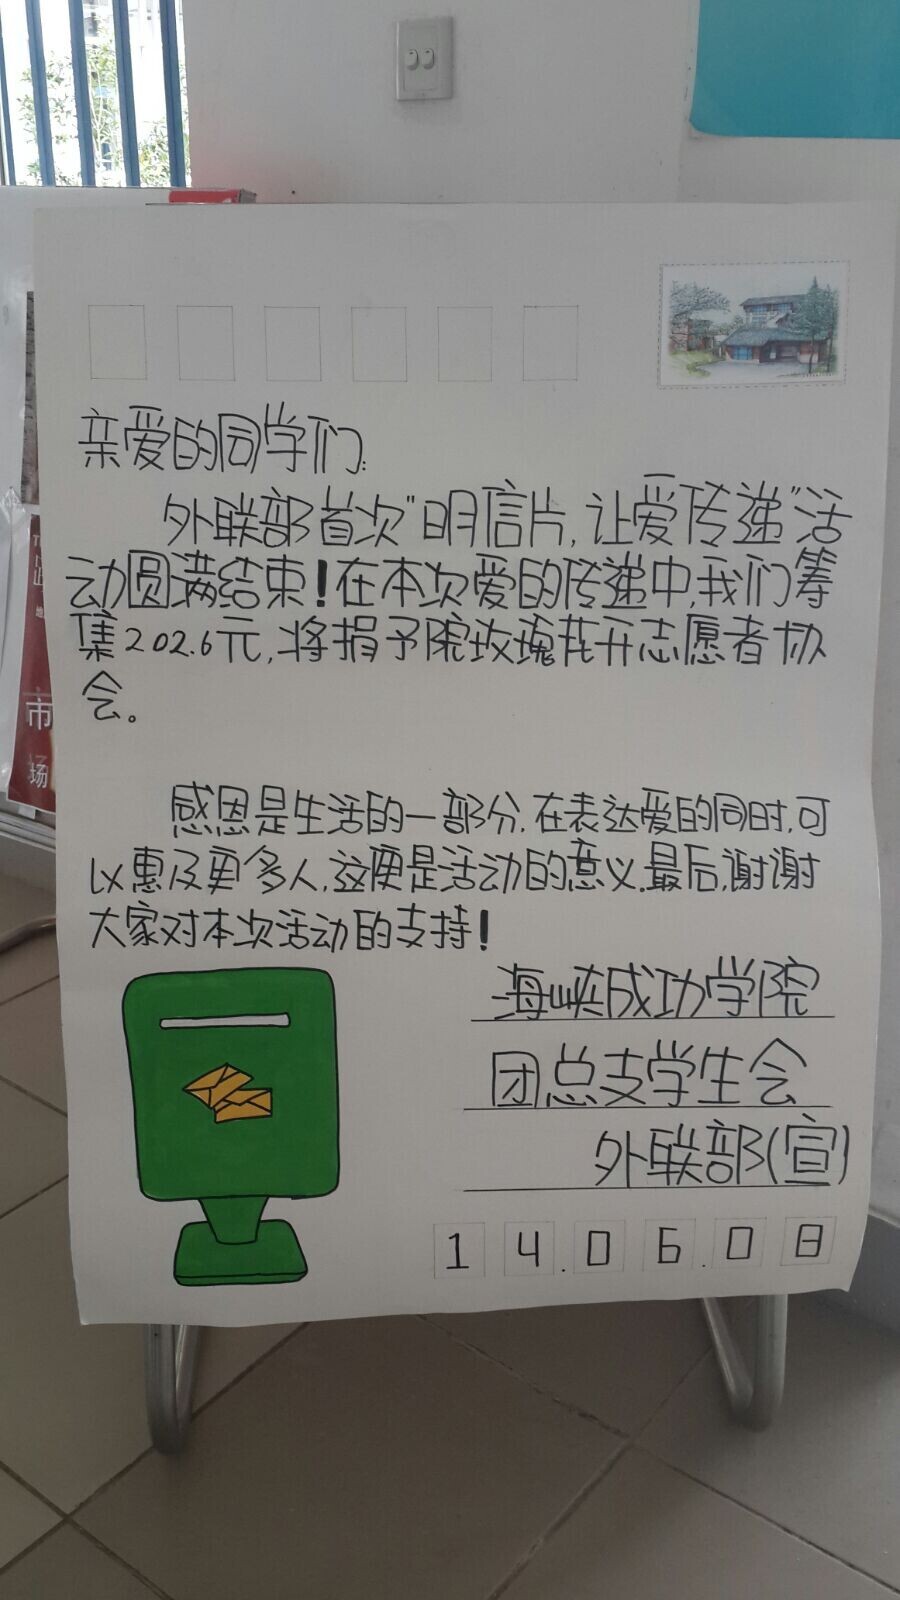 亲爱的同学们:
外联部首次"明信片,让爱传递"活
动圆满结束!在本次爱的传递中,我们筹
集202.6元,将捐予院玫瑰花开志愿者协
会。
感恩是生活的一部分.在表达爱的同时,可
以惠及更多人,这便是活动的意义.最后,谢谢
大家对本次活动的支持!
海峡成功学院
团总支学生会
外联部(宣)
14.06.08
市
场